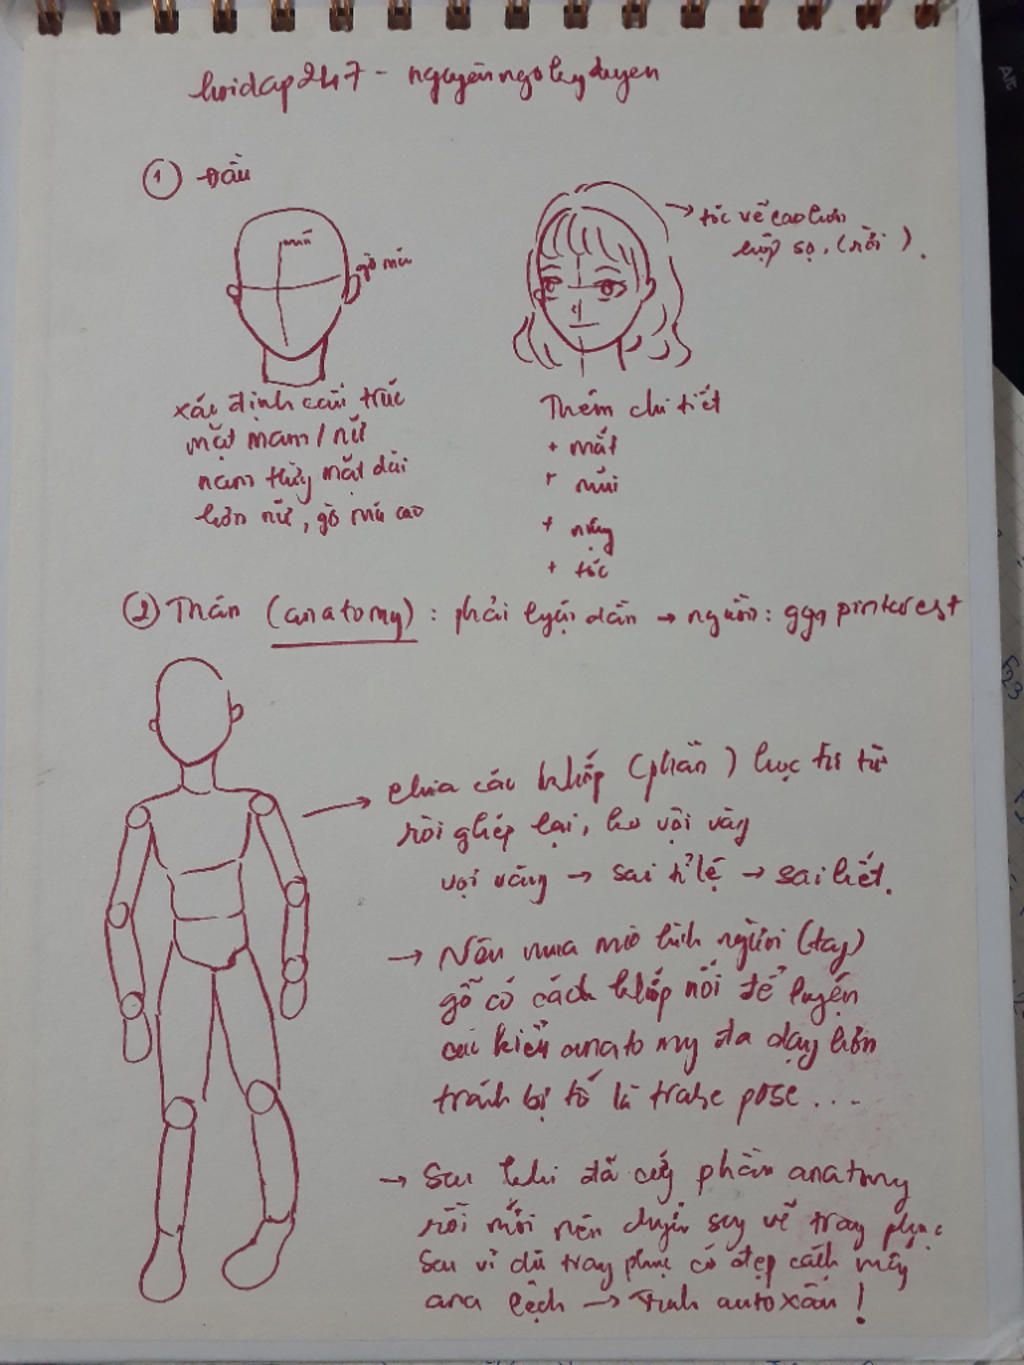 hoidap247 - nguyenngokyduyen
① Đầu
mũi
gò má
tóc vẽ cao hơn
hộp sọ, (rồi).
xác định cấu trúc
mặt nam / nữ
nam thủy mặt dài
hơn nữ, gò má cao
Thêm chi tiết
+ mắt
+ mũi
+ miệng
+ tóc
② Thân (anatomy) : phải luyện dần → nguồn: gg, pinterest
→ chia các khớp (phần) học từ từ
rồi ghép lại, ko vội vàng
vội vàng → sai tỉ lệ → sai hết.
→ Nên mua mô hình người (tay)
gỗ có cách khớp nối để luyện
các kiểu anatomy đa dạng hơn
tránh bị tố là trase pose...
→ Sau khi đã cứng phần anatomy
rồi mới nên chuyển sang vẽ trang phục
sau vì dù trang phục có đẹp cách mấy
ana lệch → Tranh auto xấu!